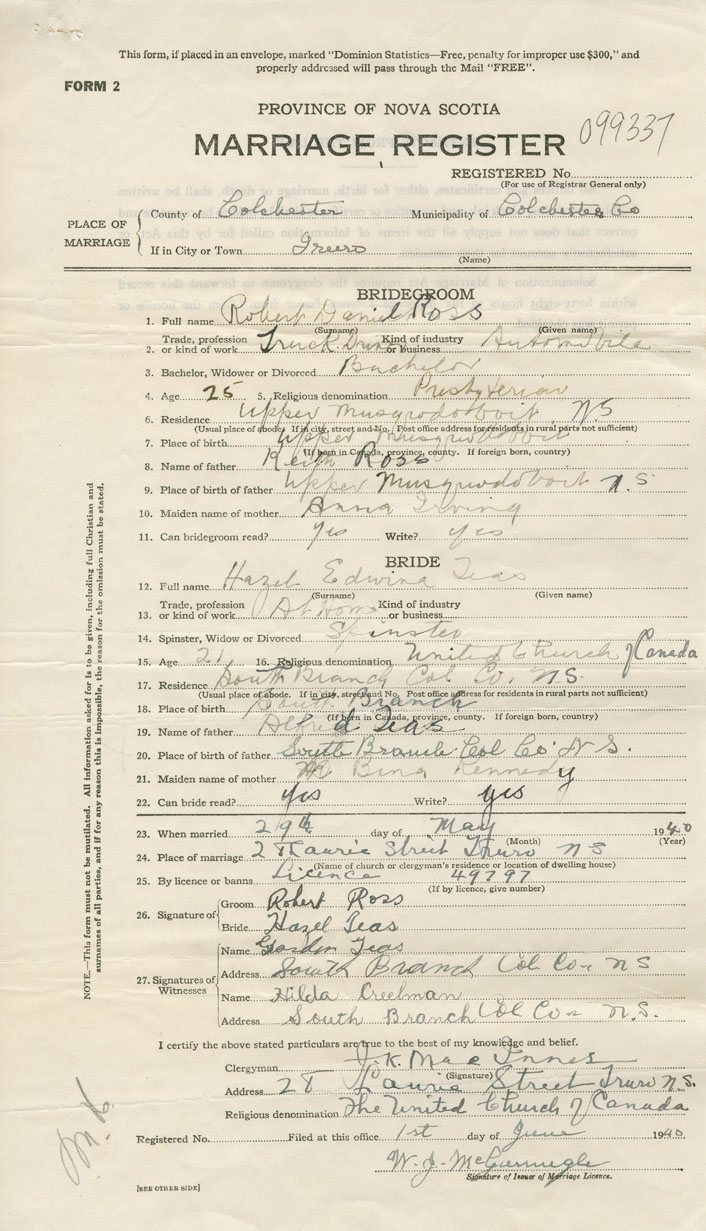 This form, if placed in an envelope, marked "Dominion Statistics—Free, penalty for improper use $300," and
properly addressed will pass through the Mail "FREE".
FORM 2
PROVINCE OF NOVA SCOTIA
MARRIAGE REGISTER 099337
REGISTERED No.
(For use of Registrar General only)
PLACE OF MARRIAGE
County of Colchester Municipality of Colchester Co
If in City or Town Truro
(Name)
BRIDEGROOM
1. Full name Robert Daniel Ross
(Surname) (Given name)
2. Trade, profession or kind of work Truck Driver Kind of industry or business Automobile
3. Bachelor, Widower or Divorced Bachelor
4. Age 25 5. Religious denomination Presbyterian
6. Residence Upper Musquodoboit N S
(Usual place of abode. If in city, street and No. Post office address for residents in rural parts not sufficient)
7. Place of birth Upper Musquodoboit
(If born in Canada, province, county. If foreign born, country)
8. Name of father Keith Ross
9. Place of birth of father Upper Musquodoboit N.S.
10. Maiden name of mother Anna Irving
11. Can bridegroom read? Yes Write? yes
BRIDE
12. Full name Hazel Edwina Teas
(Surname) (Given name)
13. Trade, profession or kind of work At Home Kind of industry or business
14. Spinster, Widow or Divorced Spinster
15. Age 21 16. Religious denomination United Church of Canada
17. Residence South Branch Col. Co. N.S.
(Usual place of abode. If in city, street and No. Post office address for residents in rural parts not sufficient)
18. Place of birth South Branch
(If born in Canada, province, county. If foreign born, country)
19. Name of father Alfred Teas
20. Place of birth of father South Branch Col Co. N S.
21. Maiden name of mother Kennedy
22. Can bride read? yes Write? yes
23. When married 29th day of May 1940
(Month) (Year)
24. Place of marriage 28 Laurie Street Truro N S
(Name of church or clergyman's residence or location of dwelling house)
25. By licence or banns Licence 49797
(If by licence, give number)
26. Signature of
Groom Robert Ross
Bride Hazel Teas
27. Signatures of Witnesses
Name Gordon Teas
Address South Branch Col. Co. N S
Name Hilda Creelman
Address South Branch Col Co. N.S.
I certify the above stated particulars are true to the best of my knowledge and belief.
Clergyman J. K. MacInnes
(Signature)
Address 28 Laurie Street Truro N.S.
Religious denomination The United Church of Canada
Registered No. Filed at this office 1st day of June 1940
W. J.
Signature of Issuer of Marriage Licence.
[SEE OTHER SIDE]
NOTE.—This form must not be mutilated. All information asked for is to be given, including full Christian and
surnames of all parties, and if for any reason this is impossible, the reason for the omission must be stated.